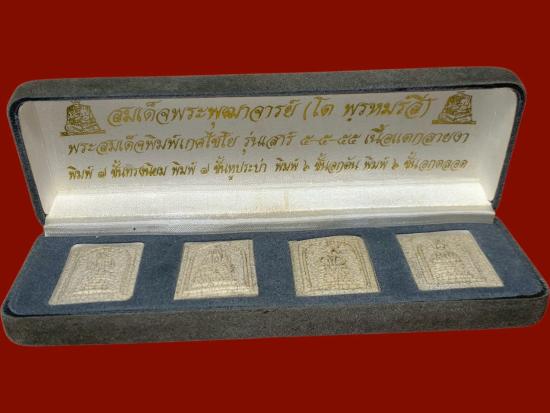 สมเด็จพระพุฒาจารย์ (โต พรหมรังสี)
พระสมเด็จพิมพ์เกศไชโย รุ่นเสาร์ ๕-๕-๕๕ เนื้อแตกลายงา
พิมพ์ ๗ ชั้นทรงนิยม พิมพ์ ๗ ชั้นหูประบ่า พิมพ์ ๖ ชั้นอกตัน พิมพ์ ๖ ชั้นอกตลอด